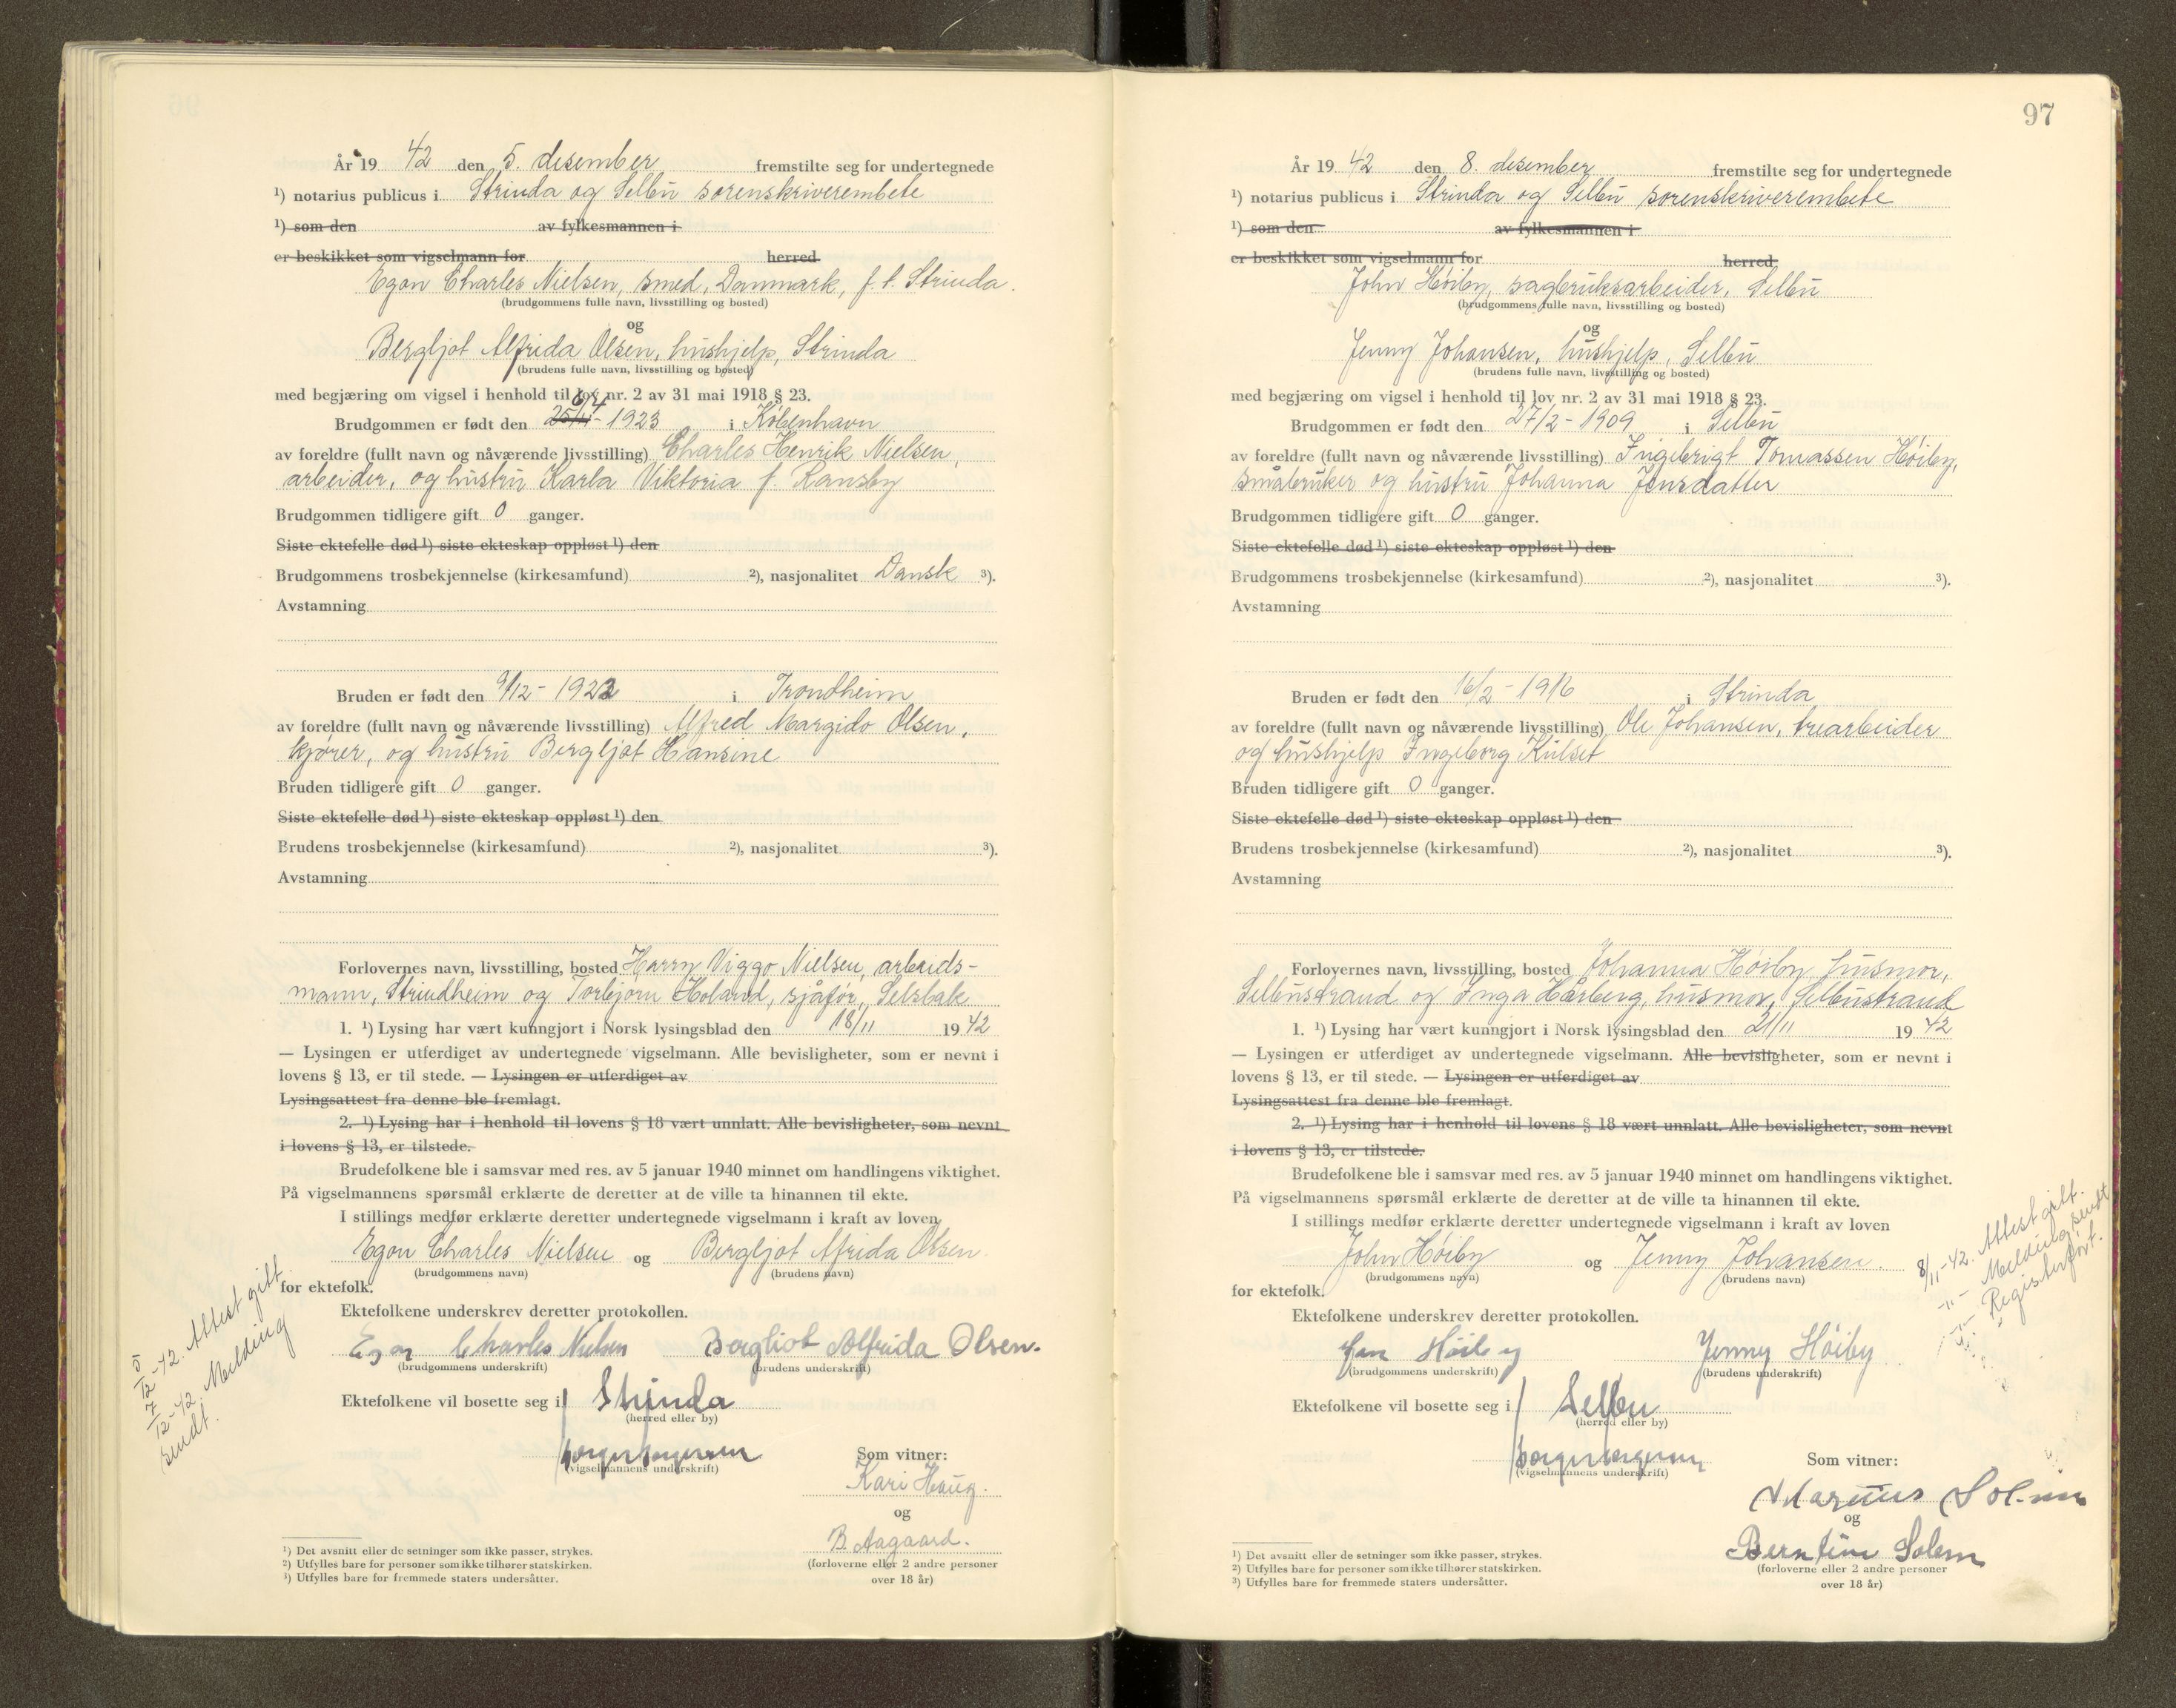 År 19 42 den 5. desember fremstilte seg for undertegnede
¹) notarius publicus i Strinda og Selbu sorenskriverembete
¹) som den av fylkesmannen i
er beskikket som vigselmann for herred
Egon Charles Nielsen, smed, Danmark, f. t. Strinda.
(brudgommens fulle navn, livsstilling og bosted)
og
Bergljot Alfrida Olsen, hushjelp, Strinda
(brudens fulle navn, livsstilling og bosted)
med begjæring om vigsel i henhold til lov nr. 2 av 31 mai 1918 § 23.
6/4
Brudgommen er født den 25/11 - 1923 i København
av foreldre (fullt navn og nåværende livsstilling) Charles Henrik Nielsen,
arbeider, og hustru Karla Viktoria f. Ransby
Brudgommen tidligere gift 0 ganger.
Siste ektefelle død ¹) siste ekteskap oppløst ¹) den
Brudgommens trosbekjennelse (kirkesamfund) ²), nasjonalitet Dansk ³).
Avstamning
Bruden er født den 9/12 - 1922 i Trondheim
av foreldre (fullt navn og nåværende livsstilling) Alfred Margido Olsen,
kjører, og hustru Bergljot Hansine
Bruden tidligere gift 0 ganger.
Siste ektefelle død ¹) siste ekteskap oppløst ¹) den
Brudens trosbekjennelse (kirkesamfund) ²), nasjonalitet ³).
Avstamning
Forlovernes navn, livsstilling, bosted Harry Viggo Nielsen, arbeids-
mann, Strindheim og Torbjørn Holand, sjåfør, Selsbak
1. ¹) Lysing har vært kunngjort i Norsk lysingsblad den 18/11 19 42
— Lysingen er utferdiget av undertegnede vigselmann. Alle bevisligheter, som er nevnt i
lovens § 13, er til stede. — Lysingen er utferdiget av
Lysingsattest fra denne ble fremlagt.
2. ¹) Lysing har i henhold til lovens § 18 vært unnlatt. Alle bevisligheter, som nevnt
i lovens § 13, er tilstede.
Brudefolkene ble i samsvar med res. av 5 januar 1940 minnet om handlingens viktighet.
På vigselmannens spørsmål erklærte de deretter at de ville ta hinannen til ekte.
I stillings medfør erklærte deretter undertegnede vigselmann i kraft av loven
Egon Charles Nielsen og Bergljot Alfrida Olsen
(brudgommens navn) (brudens navn)
for ektefolk.
Ektefolkene underskrev deretter protokollen.
Egon Charles Nielsen Bergliot Alfrida Olsen.
(brudgommens underskrift) (brudens underskrift)
Ektefolkene vil bosette seg i Strinda
(herred eller by)
(vigselmannens underskrift)
Som vitner:
Kari Haug.
og
B. Aagaard.
(forloverne eller 2 andre personer
over 18 år)
5/12-42. Attest gitt.
7/12-42. Melding
sendt.
¹) Det avsnitt eller de setninger som ikke passer, strykes.
²) Utfylles bare for personer som ikke tilhører statskirken.
³) Utfylles bare for fremmede staters undersåtter.
97
År 19 42 den 8. desember fremstilte seg for undertegnede
¹) notarius publicus i Strinda og Selbu sorenskriverembete
¹) som den av fylkesmannen i
er beskikket som vigselmann for herred
John Høiby, sagbruksarbeider, Selbu
(brudgommens fulle navn, livsstilling og bosted)
og
Jenny Johansen, hushjelp, Selbu
(brudens fulle navn, livsstilling og bosted)
med begjæring om vigsel i henhold til lov nr. 2 av 31 mai 1918 § 23.
Brudgommen er født den 27/2 - 1909 i Selbu
av foreldre (fullt navn og nåværende livsstilling) Ingebrigt Tomassen Høiby,
småbruker og hustru Johanna Jensdatter
Brudgommen tidligere gift 0 ganger.
Siste ektefelle død ¹) siste ekteskap oppløst ¹) den
Brudgommens trosbekjennelse (kirkesamfund) ²), nasjonalitet ³).
Avstamning
Bruden er født den 16/2 - 1916 i Strinda
av foreldre (fullt navn og nåværende livsstilling) Ole Johansen, trearbeider
og hushjelp Ingeborg Kulset
Bruden tidligere gift 0 ganger.
Siste ektefelle død ¹) siste ekteskap oppløst ¹) den
Brudens trosbekjennelse (kirkesamfund) ²), nasjonalitet ³).
Avstamning
Forlovernes navn, livsstilling, bosted Johanna Høiby, husmor,
Selbustrand og Inga Hårberg, husmor, Selbustrand
1. ¹) Lysing har vært kunngjort i Norsk lysingsblad den 21/11 19 42
— Lysingen er utferdiget av undertegnede vigselmann. Alle bevisligheter, som er nevnt i
lovens § 13, er til stede. — Lysingen er utferdiget av
Lysingsattest fra denne ble fremlagt.
2. ¹) Lysing har i henhold til lovens § 18 vært unnlatt. Alle bevisligheter, som nevnt
i lovens § 13, er tilstede.
Brudefolkene ble i samsvar med res. av 5 januar 1940 minnet om handlingens viktighet.
På vigselmannens spørsmål erklærte de deretter at de ville ta hinannen til ekte.
I stillings medfør erklærte deretter undertegnede vigselmann i kraft av loven
John Høiby og Jenny Johansen.
(brudgommens navn) (brudens navn)
for ektefolk.
Ektefolkene underskrev deretter protokollen.
Høiby Jenny Høiby
(brudgommens underskrift) (brudens underskrift)
Ektefolkene vil bosette seg i Selbu
(herred eller by)
(vigselmannens underskrift)
Som vitner:
Marius Solem
og
Berntine Solem
(forloverne eller 2 andre personer
over 18 år)
8/11-42. Attest gitt.
-"- Melding sendt
-"- Registerført.
¹) Det avsnitt eller de setninger som ikke passer, strykes.
²) Utfylles bare for personer som ikke tilhører statskirken.
³) Utfylles bare for fremmede staters undersåtter.